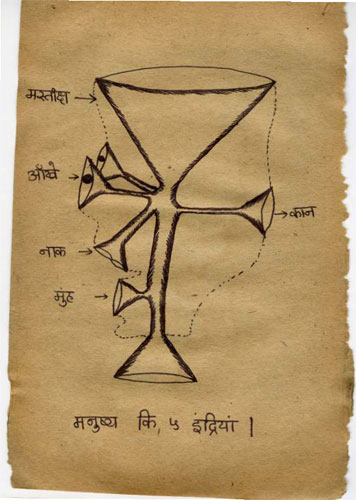 मस्तीष्क
आँखे
नाक
कान
मुंह
मनुष्य कि, ५ इंद्रियां |